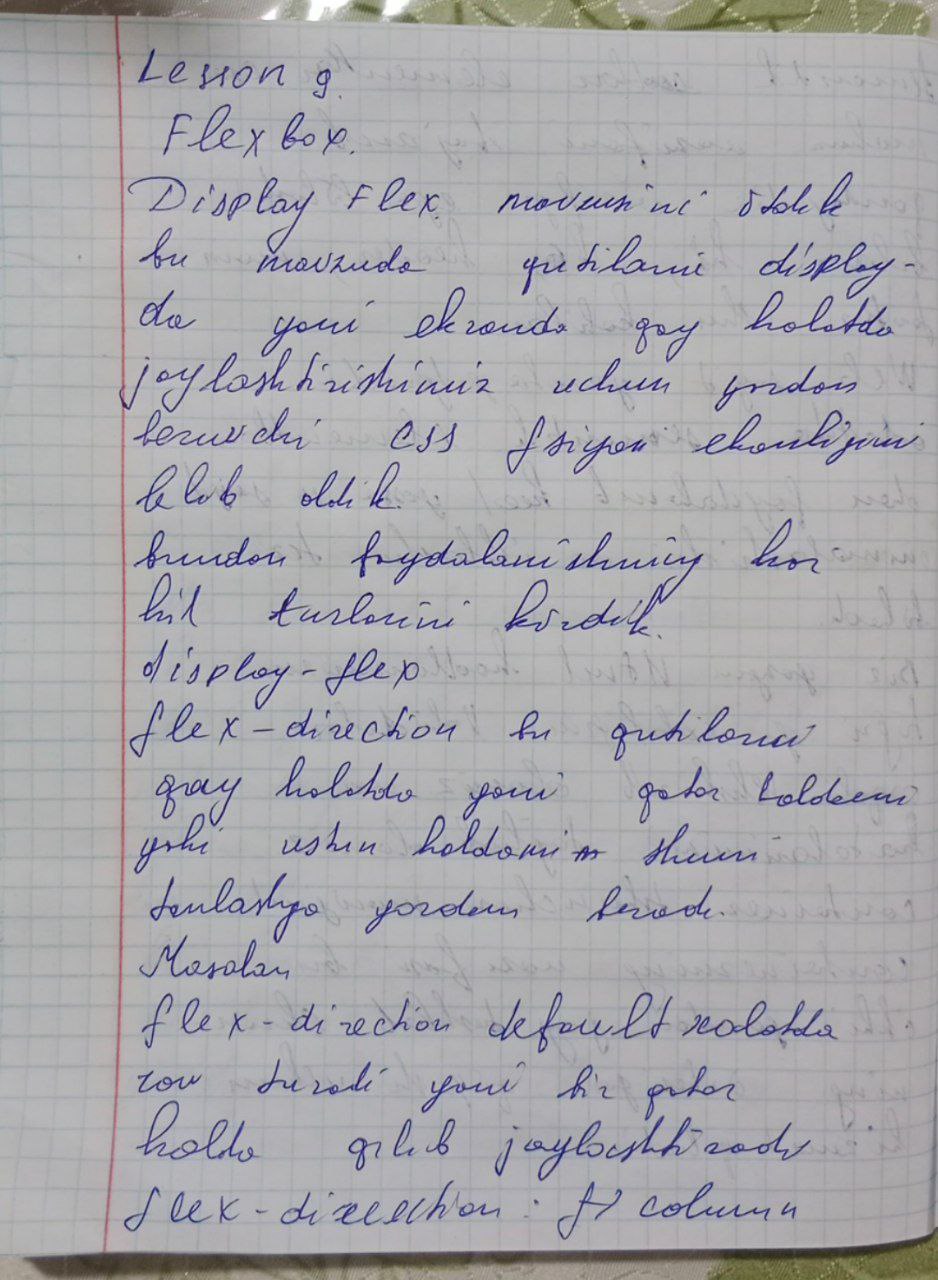 Lesson 9.
Flexbox.
Display Flex. mavzusini ötdik
bu mavzuda qutilarni display-
da yani ekranda qay holatda
joylashtirishimiz uchun yordam
beruvchi CSS fsiyasi ekanligini
bilib oldik.
bundan foydalanishning har
hil turlarini kördik.
display-flex
flex-direction bu qutilarni
qay holatda yani qator holdami
yoki ustun holdami shuni
tanlashga yordam beradi.
Masalan
flex-direction default xolatda
row turadi yani bir qator
holda qilib joylashtiradi
flex-direction: column